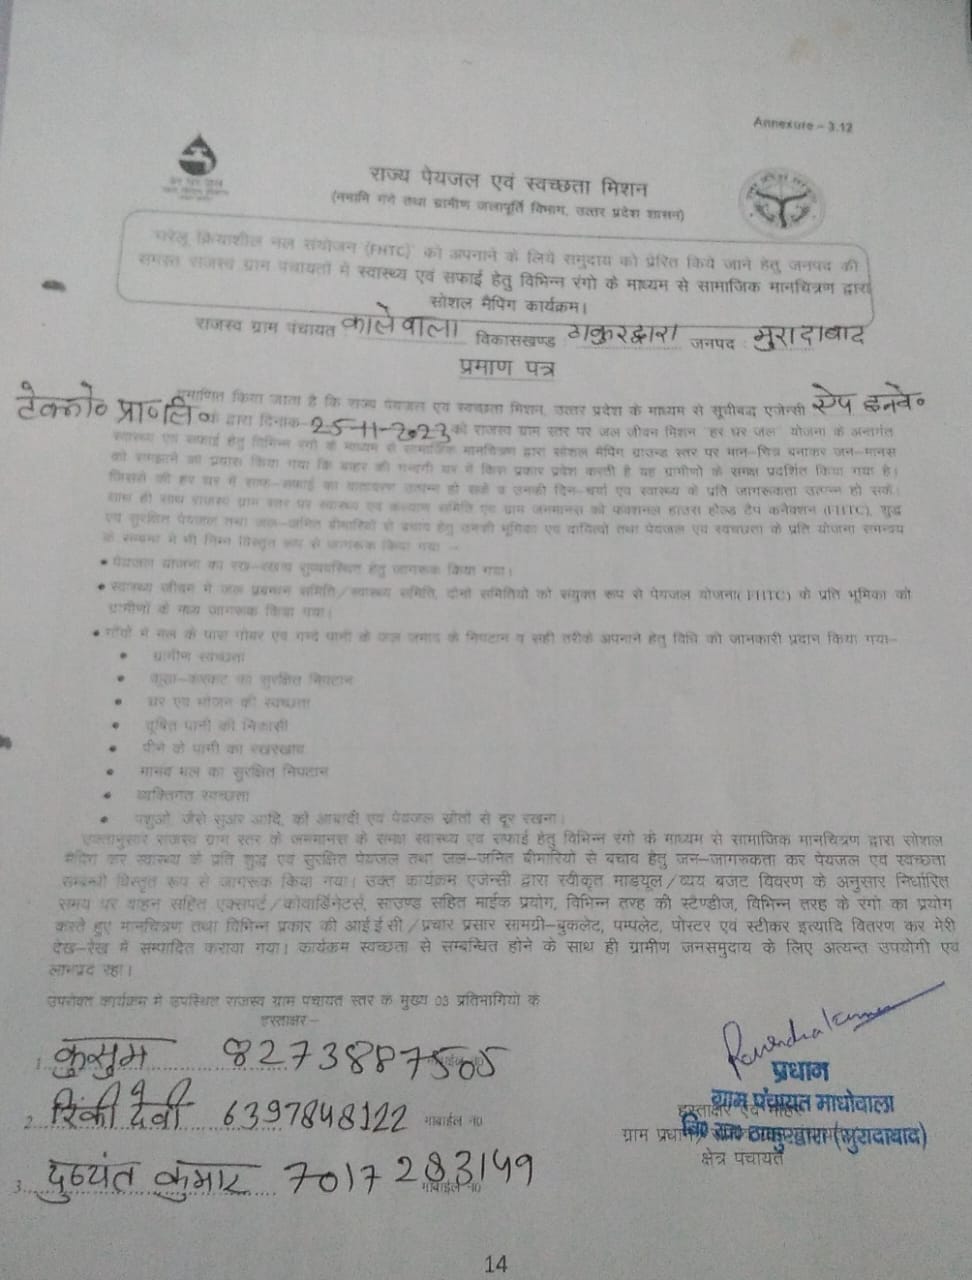 Annexure – 3.12
राज्य पेयजल एवं स्वच्छता मिशन
(नमामि गंगे तथा ग्रामीण जलापूर्ति विभाग, उत्तर प्रदेश शासन)
घरेलू क्रियाशील नल संयोजन (FHTC) को अपनाने के लिये समुदाय को प्रेरित किये जाने हेतु जनपद की
समस्त राजस्व ग्राम पंचायतों में स्वास्थ्य एवं सफाई हेतु विभिन्न रंगो के माध्यम से सामाजिक मानचित्रण द्वारा
सोशल मैपिंग कार्यक्रम।
राजस्व ग्राम पंचायत कालेवाला विकासखण्ड ठाकुरद्वारा जनपद मुरादाबाद
प्रमाण पत्र
प्रमाणित किया जाता है कि राज्य पेयजल एवं स्वच्छता मिशन, उत्तर प्रदेश के माध्यम से सूचीबद्ध एजेन्सी
टेक्नो० प्रा०लि० के द्वारा दिनांक-25-11-2023 को राजस्व ग्राम स्तर पर जल जीवन मिशन "हर घर जल" योजना के अन्तर्गत
स्वास्थ्य एवं सफाई हेतु विभिन्न रंगो के माध्यम से सामाजिक मानचित्रण द्वारा सोशल मैपिंग ग्राउन्ड स्तर पर मान-चित्र बनाकर जन-मानस
को समझाने का प्रयास किया गया कि बाहर की गन्दगी घर में किस प्रकार प्रवेश करती है यह ग्रामीणो के समक्ष प्रदर्शित किया गया है।
जिससे की हर घर में साफ-सफाई का वातावरण उत्पन्न हो सके व उनकी दिन-चर्या एवं स्वास्थ्य के प्रति जागरूकता उत्पन्न हो सकें।
साथ ही साथ राजस्व ग्राम स्तर पर स्वास्थ्य एवं कल्याण समिति एवं ग्राम जनमानस को फंक्शनल हाउस होल्ड टैप कनेक्शन (FHTC), शुद्ध
एवं सुरक्षित पेयजल तथा जल-जनित बीमारियों से बचाव हेतु उनकी भूमिका एवं दायित्वो तथा पेयजल एवं स्वच्छता के प्रति योजना समन्वय
के सम्बन्ध में भी निम्न विस्तृत रूप से जागरूक किया गया :–
• पेयजल योजना का रख-रखाव सुव्यवस्थित हेतु जागरूक किया गया।
• स्वास्थ्य जीवन में जल प्रबन्धन समिति/स्वास्थ्य समिति, दोनो समितियो को संयुक्त रूप से पेयजल योजना( FHTC) के प्रति भूमिका को
ग्रामीणों के मध्य जागरूक किया गया।
• गाँवो में नल के पास गोबर एवं गन्दे पानी के जल जमाव के निपटान व सही तरीके अपनाने हेतु विधि की जानकारी प्रदान किया गया–
• ग्रामीण स्वच्छता
• कूड़ा-करकट का सुरक्षित निपटान
• घर एवं भोजन की स्वच्छता
• दूषित पानी की निकासी
• पीने के पानी का रखरखाव
• मानव मल का सुरक्षित निपटान
• व्यक्तिगत स्वच्छता
• पशुओं, जैसे सुअर आदि, को आबादी एवं पेयजल स्रोतों से दूर रखना।
उक्तानुसार राजस्व ग्राम स्तर के जनमानस के समक्ष स्वास्थ्य एवं सफाई हेतु विभिन्न रंगो के माध्यम से सामाजिक मानचित्रण द्वारा सोशल
मैपिंग कर स्वास्थ्य के प्रति शुद्ध एवं सुरक्षित पेयजल तथा जल-जनित बीमारियों से बचाव हेतु जन-जागरुकता कर पेयजल एवं स्वच्छता
सम्बन्धी विस्तृत रूप से जागरूक किया गया। उक्त कार्यक्रम एजेन्सी द्वारा स्वीकृत माड्यूल/व्यय बजट विवरण के अनुसार निर्धारित
समय पर वाहन सहित एक्सपर्ट/कोवार्डिनेटर्स, साउण्ड सहित माईक प्रयोग, विभिन्न तरह की स्टैण्डीज, विभिन्न तरह के रंगो का प्रयोग
करते हुए मानचित्रण तथा विभिन्न प्रकार की आई ई सी/प्रचार प्रसार सामग्री-बुकलेट, पम्पलेट, पोस्टर एवं स्टीकर इत्यादि वितरण कर मेरी
देख-रेख में सम्पादित कराया गया। कार्यक्रम स्वच्छता से सम्बन्धित होने के साथ ही ग्रामीण जनसमुदाय के लिए अत्यन्त उपयोगी एवं
लाभप्रद रहा।
उपरोक्त कार्यक्रम में उपस्थित राजस्व ग्राम पंचायत स्तर के मुख्य 03 प्रतिभागियों के
हस्ताक्षर–
1. कुसुम 8273887505
2. रिंकी देवी 6397848122 मोबाईल नं0
3. दुष्यंत कुमार 7017283149 मोबाईल नं0
प्रधान
ग्राम पंचायत माधोवाला
वि० ख० ठाकुरद्वारा (मुरादाबाद)
हस्ताक्षर एवं
ग्राम प्रधान
क्षेत्र पंचायत
14